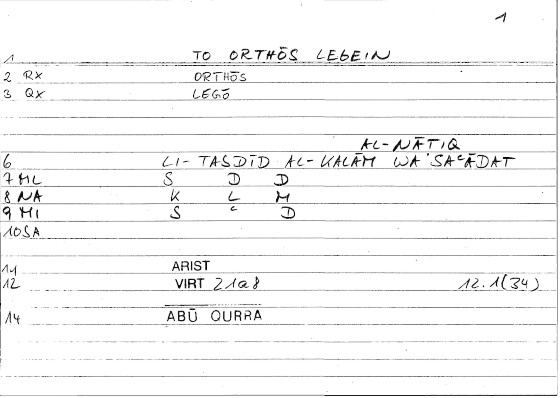 1
1 TO ORTHŌS LEGEIN
2 RX ORTHŌS
3 QX LEGŌ
AL-NĀTIQ
6 LI-TASDĪD AL-KALĀM WA SAʿĀDAT
7 ML S D D
8 NA K L M
9 MI S ʿ D
10SA
11 ARIST
12 VIRT 21a8 12.1(34)
14 ABŪ QURRA